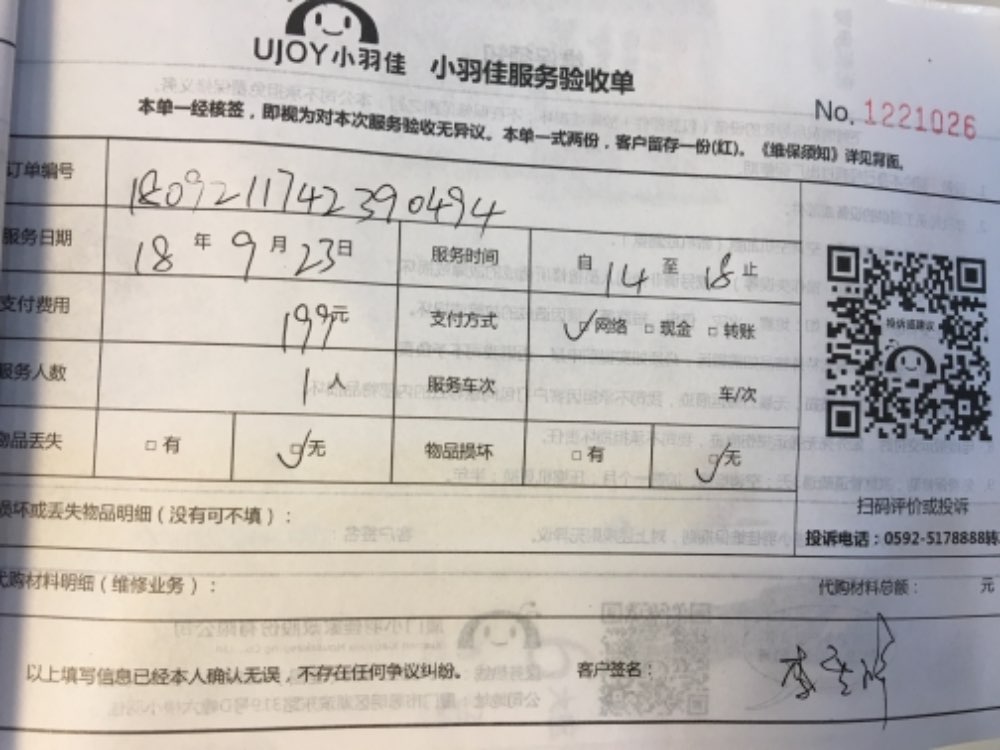 UJOY小羽佳 小羽佳服务验收单
No. 1221026
本单一经核签，即视为对本次服务验收无异议。本单一式两份，客户留存一份(红)。《维保须知》详见背面。
订单编号 1809211742390494
服务日期 18 年 9 月 23 日 服务时间 自 14 至 18 止
支付费用 199元 支付方式 ☑网络 □现金 □转账
服务人数 1人 服务车次 车/次
物品丢失 □有 ☑无 物品损坏 □有 ☑无
投诉或建议
扫码评价或投诉
投诉电话：0592-5178888转
损坏或丢失物品明细（没有可不填）：
代购材料明细（维修业务）： 代购材料总额： 元
以上填写信息已经本人确认无误，不存在任何争议纠纷。 客户签名：